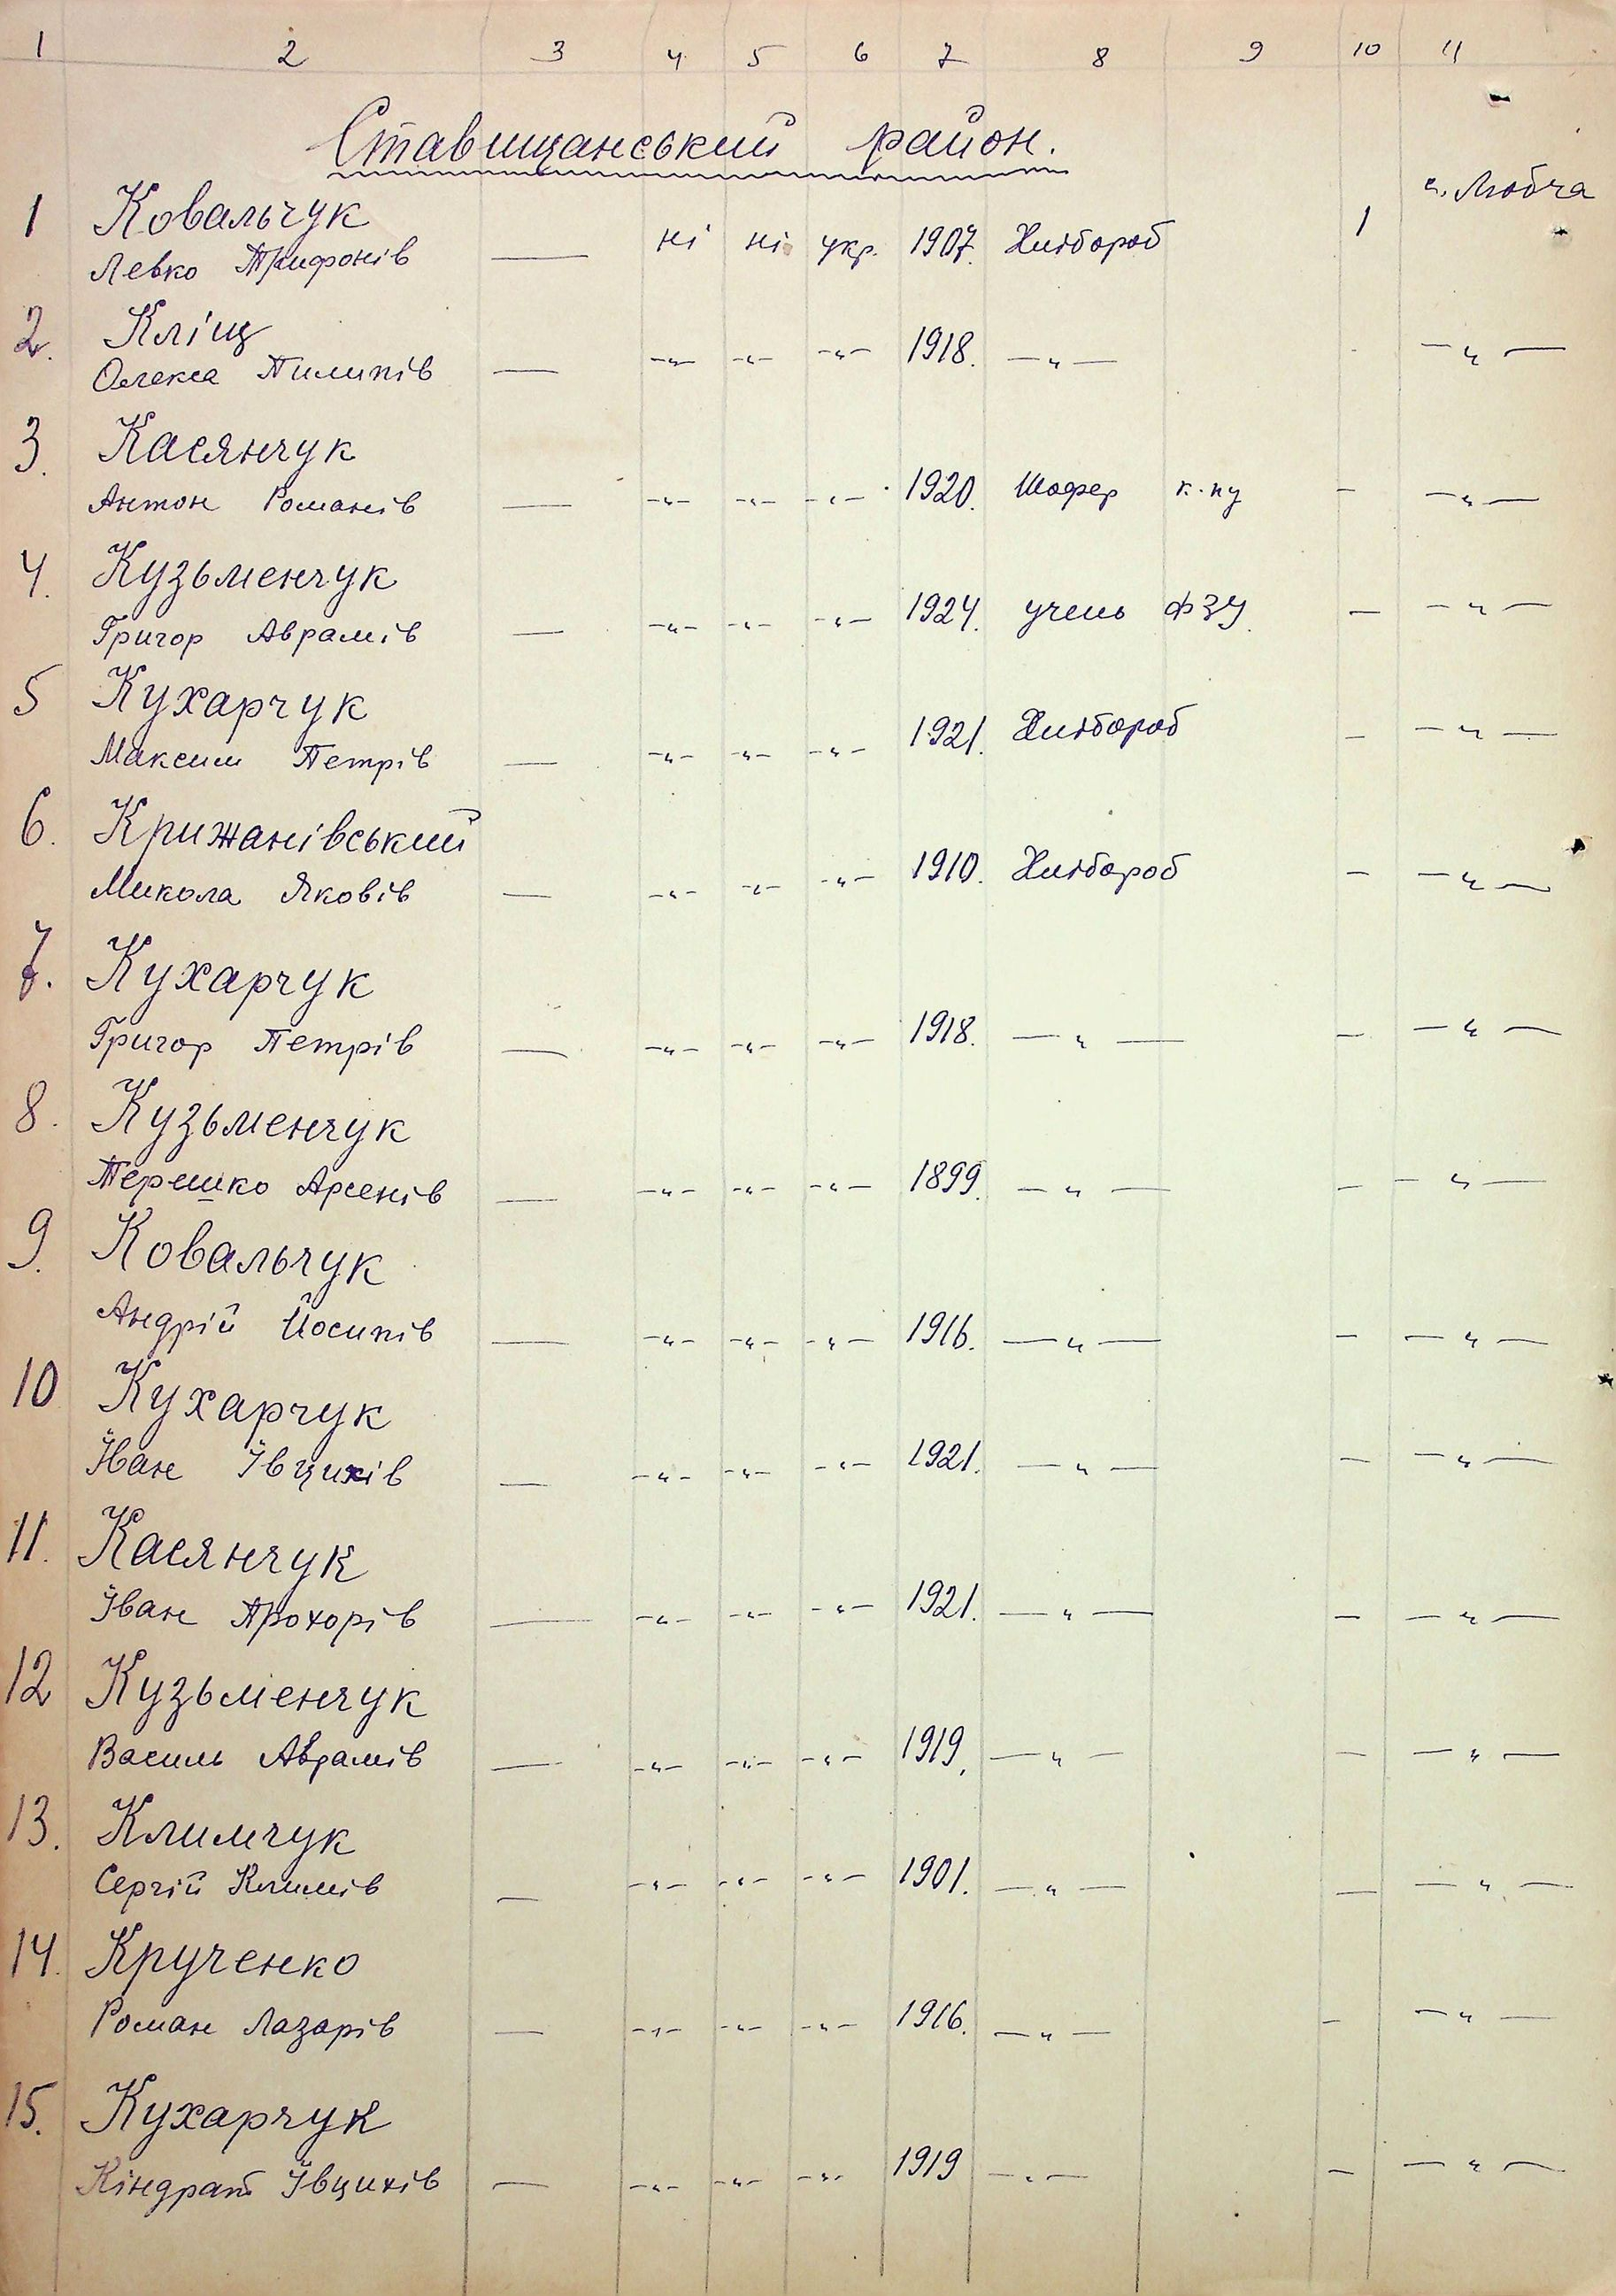 1 2 3 4 5 6 7 8 9 10 11
Ставищанський район.
с. Любча
1 Ковальчук
Левко Трифонів — ні ні укр. 1907. Хлібороб 1
2. Кліщ
Олекса Пилипів — —"— —"— —"— 1918. —"— —"—
3. Касянчук
Антон Романів — —"— —"— —"— 1920. Шофер к-пу — —"—
4. Кузьменчук
Григор Аврамів — —"— —"— —"— 1924. учень ФЗУ. — —"—
5 Кухарчук
Максим Петрів — —"— —"— —"— 1921. Хлібороб — —"—
6. Крижанівський
Микола Яковів — —"— —"— —"— 1910. Хлібороб — —"—
7. Кухарчук
Григор Петрів — —"— —"— —"— 1918. —"— — —"—
8. Кузьменчук
Терешко Арсенів — —"— —"— —"— 1899. —"— — —"—
9. Ковальчук
Андрій Йосипів — —"— —"— —"— 1916. —"— — —"—
10 Кухарчук
Їван Ївцихів — —"— —"— —"— 1921. —"— — —"—
11. Касянчук
Їван Прохорів — —"— —"— —"— 1921. —"— — —"—
12 Кузьменчук
Василь Аврамів — —"— —"— —"— 1919. —"— — —"—
13. Климчук
Сергій Климів — —"— —"— —"— 1901. —"— — —"—
14. Крученко
Роман Лазарів — —"— —"— —"— 1916. —"— — —"—
15. Кухарчук
Кіндрат Ївцихів — —"— —"— —"— 1919 —"— — —"—